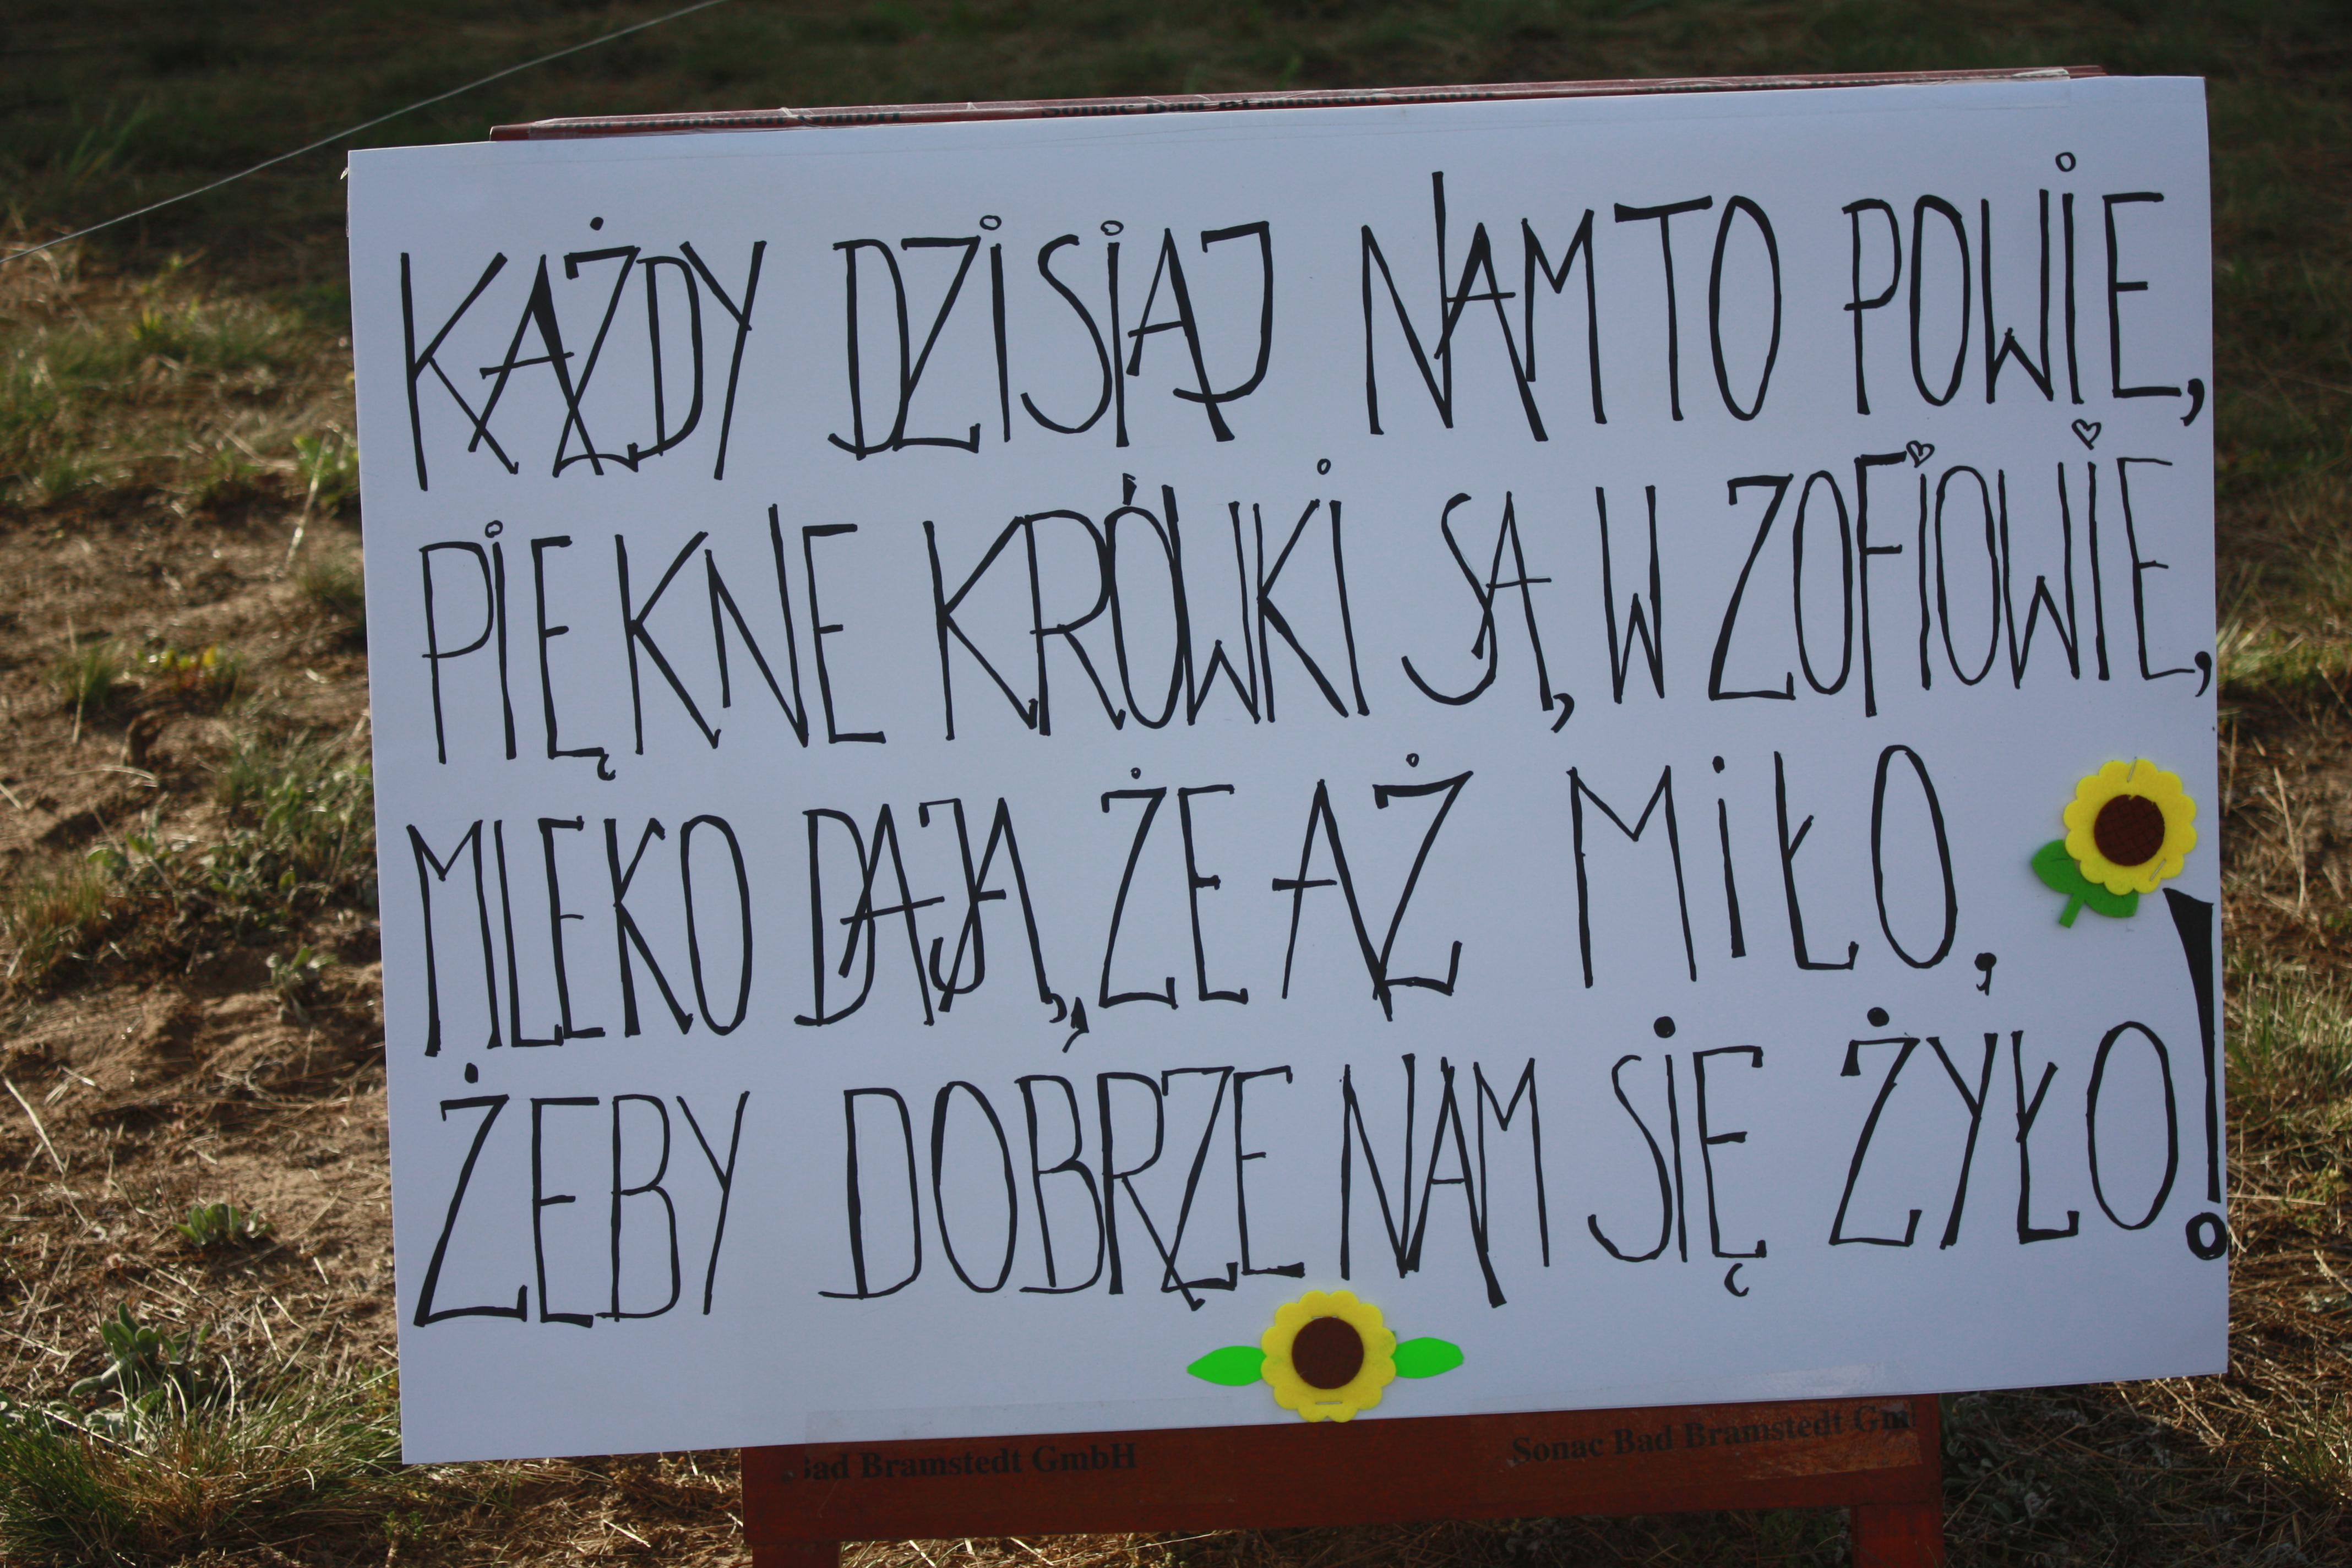 KAŻDY DZISIAJ NAM TO POWIE,
PIĘKNE KRÓWKI SĄ W ZOFIOWIE,
MLEKO DAJĄ, ŻE AŻ MIŁO,
ŻEBY DOBRZE NAM SIĘ ŻYŁO!
Bad Bramstedt GmbH Sonac Bad Bramstedt Gm